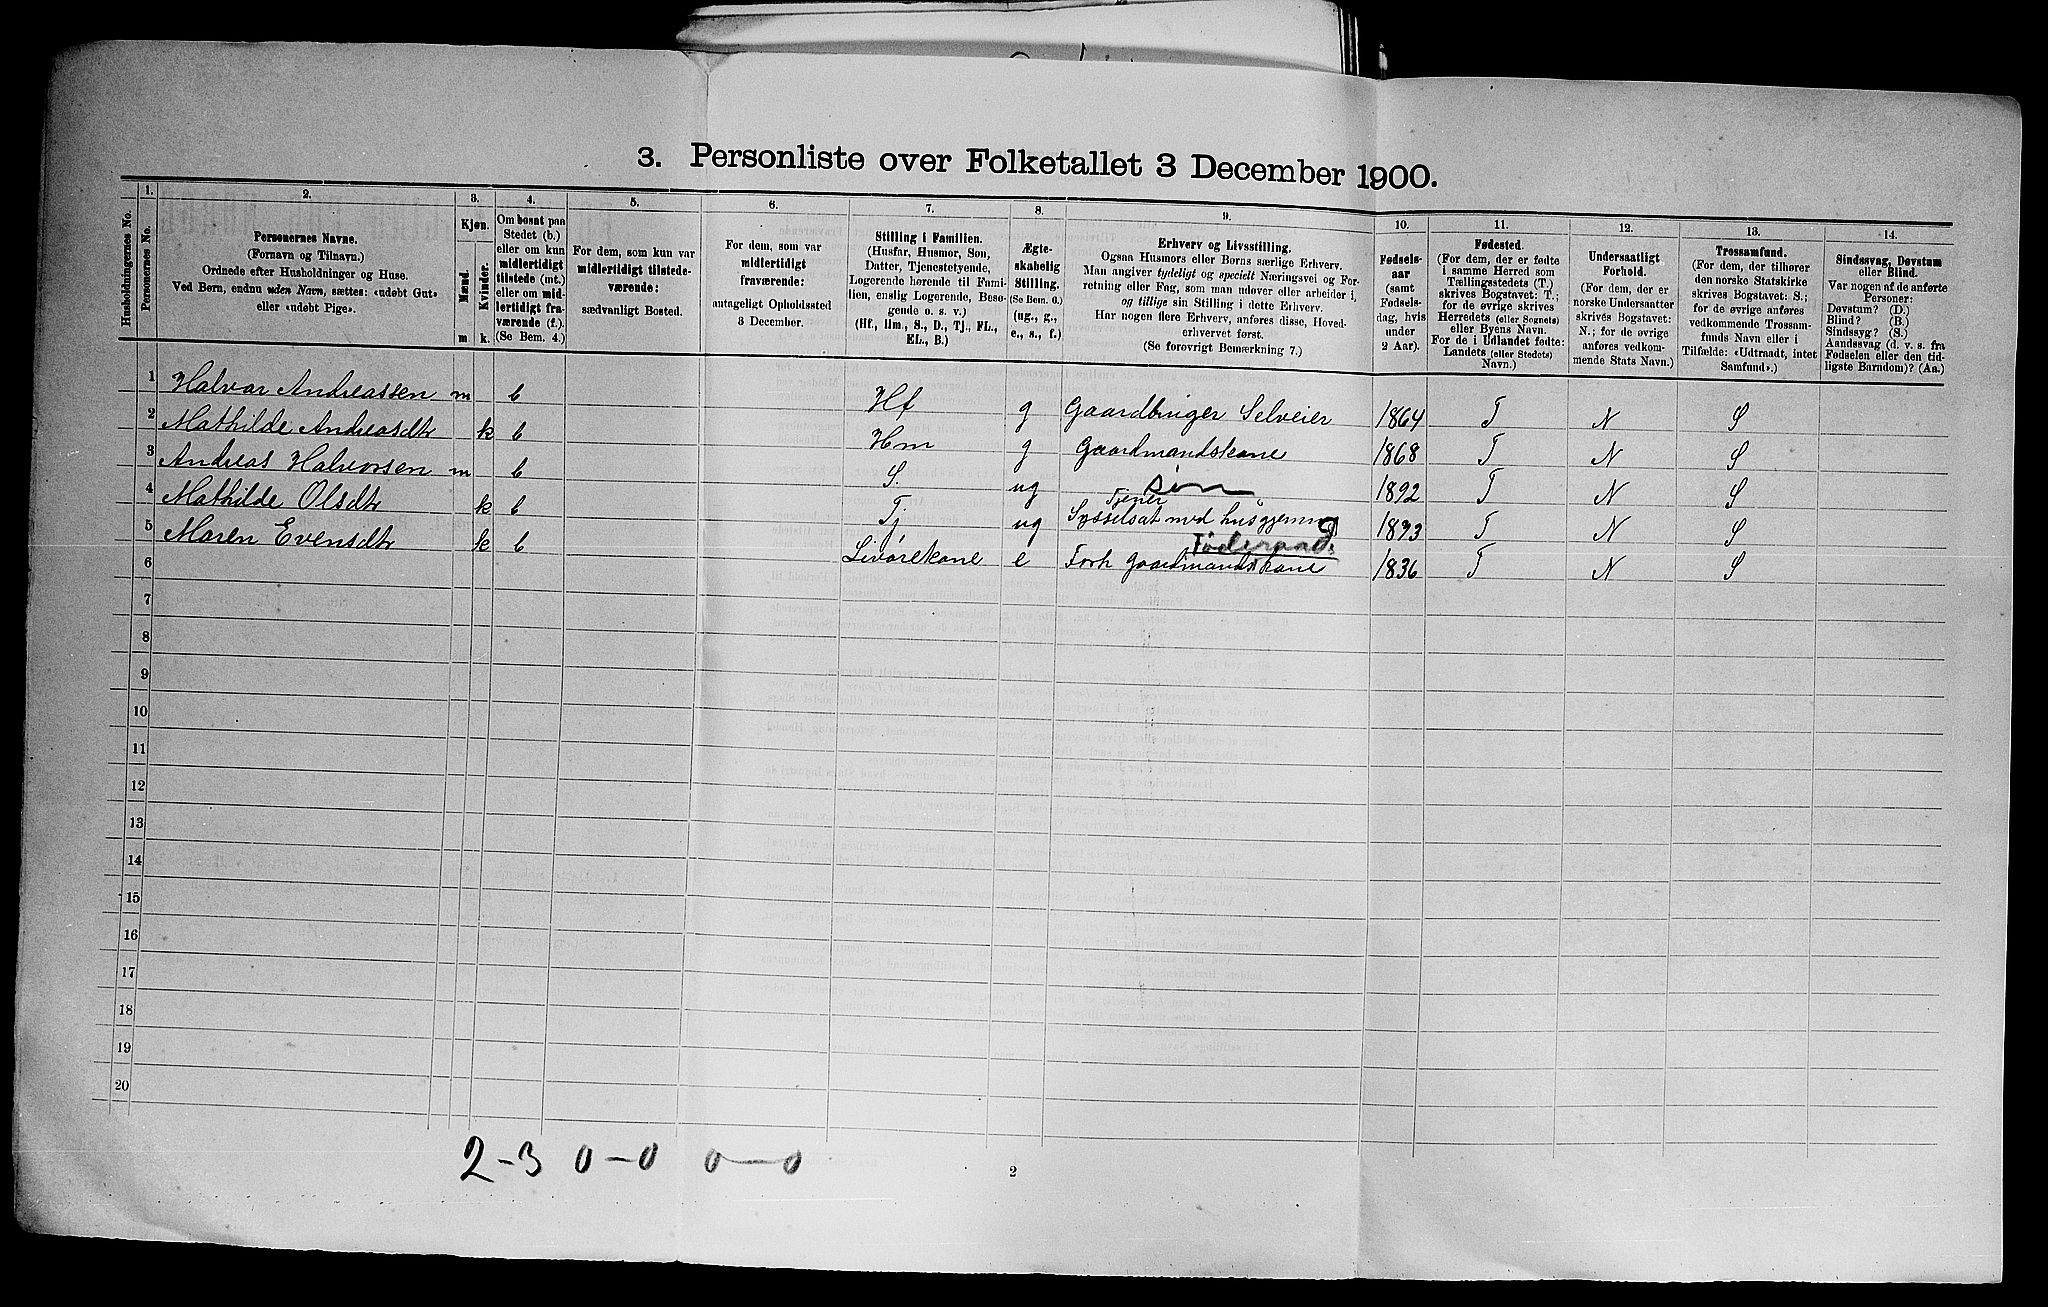 3. Personliste over Folketallet 3 December 1900.
Husholdningernes No.
1.
Personernes No.
2.
Personernes Navne.
(Fornavn og Tilnavn.)
Ordnede efter Husholdninger og Huse.
Ved Børn, endnu uden Navn, sættes: «udøbt Gut»
eller «udøbt Pige».
3.
Kjøn.
Mænd.
Kvinder.
m k.
4.
Om bosat paa
Stedet (b.)
eller om kun
midlertidigt
tilstede (mt.)
eller om mid-
lertidigt fra-
værende (f.).
(Se Bem. 4.)
5.
For dem, som kun var
midlertidigt tilstede-
værende:
sædvanligt Bosted.
6.
For dem, som var
midlertidigt
fraværende:
antageligt Opholdssted
3 December.
7.
Stilling i Familien.
(Husfar, Husmor, Søn,
Datter, Tjenestetyende,
Logerende hørende til Fami-
lien, enslig Logerende, Besø-
gende o. s. v.)
(Hf., Hm., S., D., Tj., FL.,
EL., B.)
8.
Ægte-
skabelig
Stilling.
(Se Bem. 6.)
(ug., g.,
e., s., f.)
9.
Erhverv og Livsstilling.
Ogsaa Husmors eller Børns særlige Erhverv.
Man angiver tydeligt og specielt Næringsvei og For-
retning eller Fag, som man udøver eller arbeider i,
og tillige sin Stilling i dette Erhverv.
Har nogen flere Erhverv, anføres disse, Hoved-
erhvervet først.
(Se forøvrigt Bemærkning 7.)
10.
Fødsels-
aar
(samt
Fødsels-
dag, hvis
under
2 Aar).
11.
Fødested.
(For dem, der er fødte
i samme Herred som
Tællingsstedets (T.)
skrives Bogstavet: T.;
for de øvrige skrives
Herredets (eller Sognets)
eller Byens Navn.
For de i Udlandet fødte:
Landets (eller Stedets)
Navn.)
12.
Undersaatligt
Forhold.
(For dem, der er
norske Undersaatter
skrives Bogstavet:
N.; for de øvrige
anføres vedkom-
mende Stats Navn.)
13.
Trossamfund.
(For dem, der tilhører
den norske Statskirke
skrives Bogstavet: S.;
for de øvrige anføres
vedkommende Trossam-
funds Navn eller i
Tilfælde: «Udtraadt, intet
Samfund».)
14.
Sindssvag, Døvstum
eller Blind.
Var nogen af de anførte
Personer:
Døvstum? (D.)
Blind? (B.)
Sindssyg? (S.)
Aandssvag (d. v. s. fra
Fødselen eller den tid-
ligste Barndom)? (Aa.)
1 Halvar Andreassen m b Hf g Gaardbruger Selveier 1864 T N S
2 Mathilde Andreasdtr k b Hm g Gaardmandskone 1868 T N S
3 Andreas Halvorsen m b S. ug søn 1892 T N S
Tjener
4 Mathilde Olsdtr k b Tj ug Sysselsat med husgjerning T N S
Føderaads
5 Maren Evensdtr k b Livørekone e Forh Gaardmandskone 1836 T N S
6
7
8
9
10
11
12
13
14
15
16
17
18
19
20
2-3 0-0 0-0
2